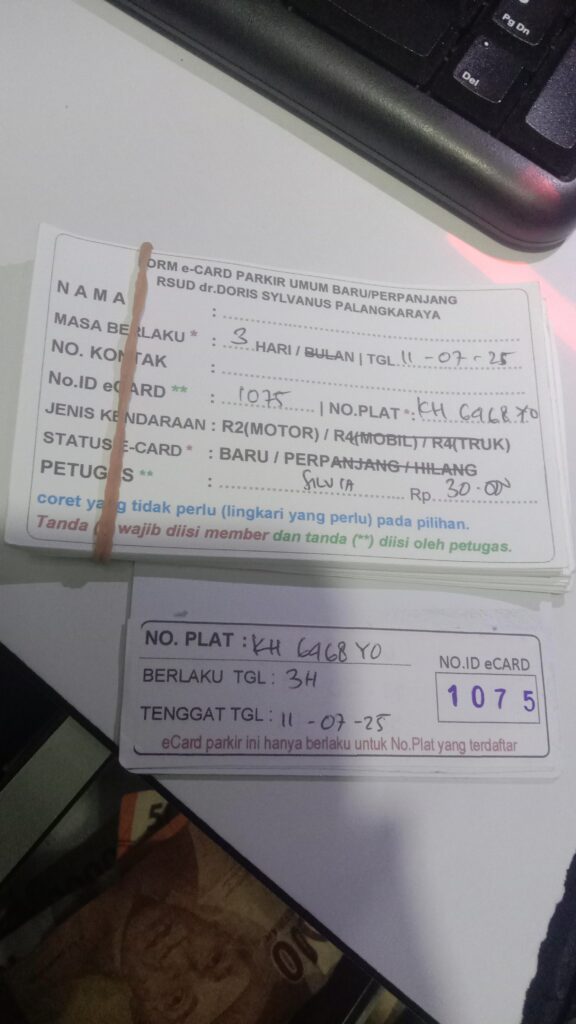 Pg Dn
Del
FORM e-CARD PARKIR UMUM BARU/PERPANJANG
RSUD dr.DORIS SYLVANUS PALANGKARAYA
NAMA :
MASA BERLAKU * : 3 HARI / BULAN | TGL 11 - 07 - 25
NO. KONTAK :
No.ID eCARD ** : 1075 | NO.PLAT *: KH 6968 YO
JENIS KENDARAAN : R2(MOTOR) / R4(MOBIL) / R4(TRUK)
STATUS E-CARD * : BARU / PERPANJANG / HILANG
PETUGAS ** : SILVIA Rp. 30.000
coret yang tidak perlu (lingkari yang perlu) pada pilihan.
Tanda (*) wajib diisi member dan tanda (**) diisi oleh petugas.
NO. PLAT : KH 6968 YO
BERLAKU TGL : 3H
TENGGAT TGL : 11 - 07 - 25
NO.ID eCARD
1075
eCard parkir ini hanya berlaku untuk No.Plat yang terdaftar